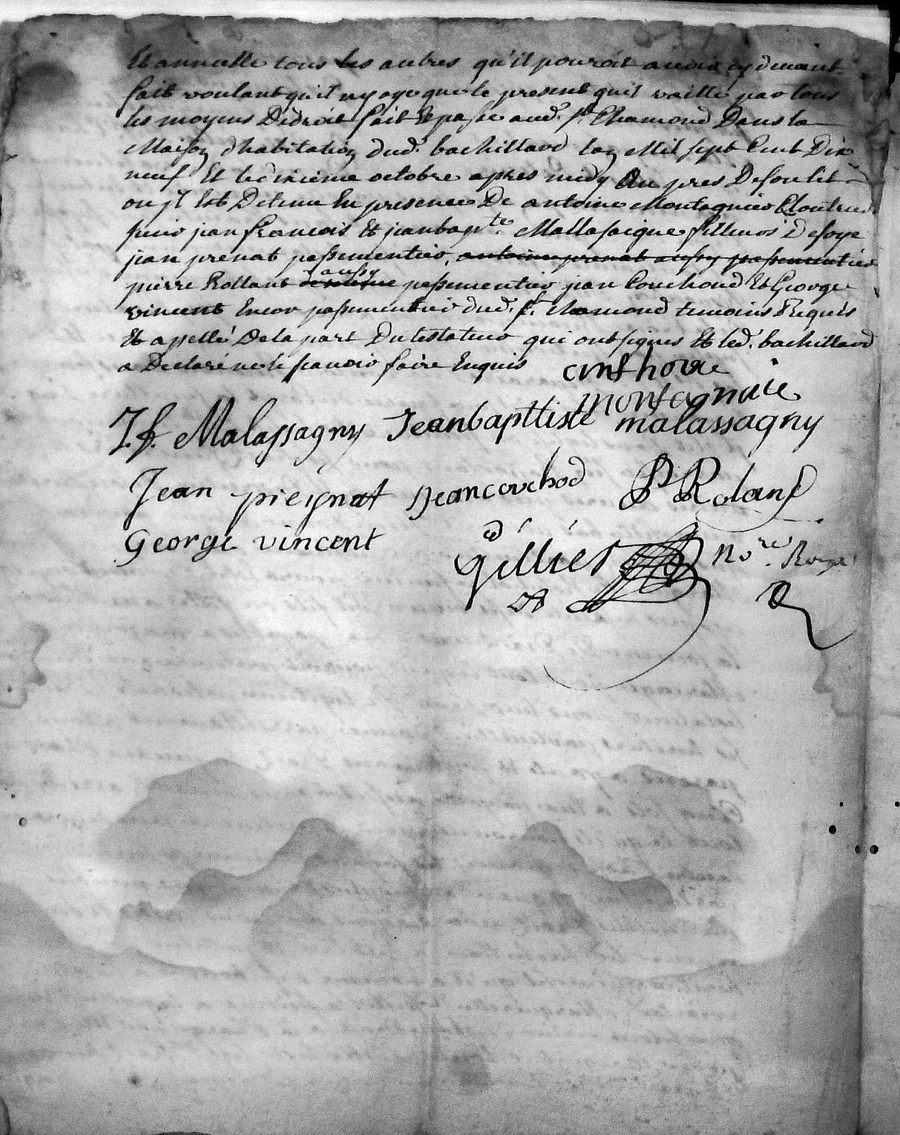 Et annulle tous les autres qu'il pouroit avoir cy devant
fait voulant qu'il n'y aye que le present qu'il vaille par tous
les moyens De droit fait et passé aud. St. Chamond Dans la
Maison d'habitation dud. bachillard lan Mil sept Cent Dix
neuf Et le dixieme octobre apres midy Au pres De son lit
ou jl Est Detenu En presence De antoine Montagnier Cloutier
sieur jean francois Et jean bapte. Mallassaigne filleurs De soye
jean preynat passementier, antoine preynat aussy passementier
pierre Rollant aussy passementier jean Couchoud Et George
vincent Encor passementier dud. St. Chamond temoins Requis
Et appellé De la part Du testateur qui ont signes Et led. bachillard
a Declaré ne le scavoir faire Enquis
anthoine
montagnier
J. f. Malassagny Jean bapttiste malassagny
Jean preynat Jean couchod P Rolant
George vincent
Gilliér No.re Royal